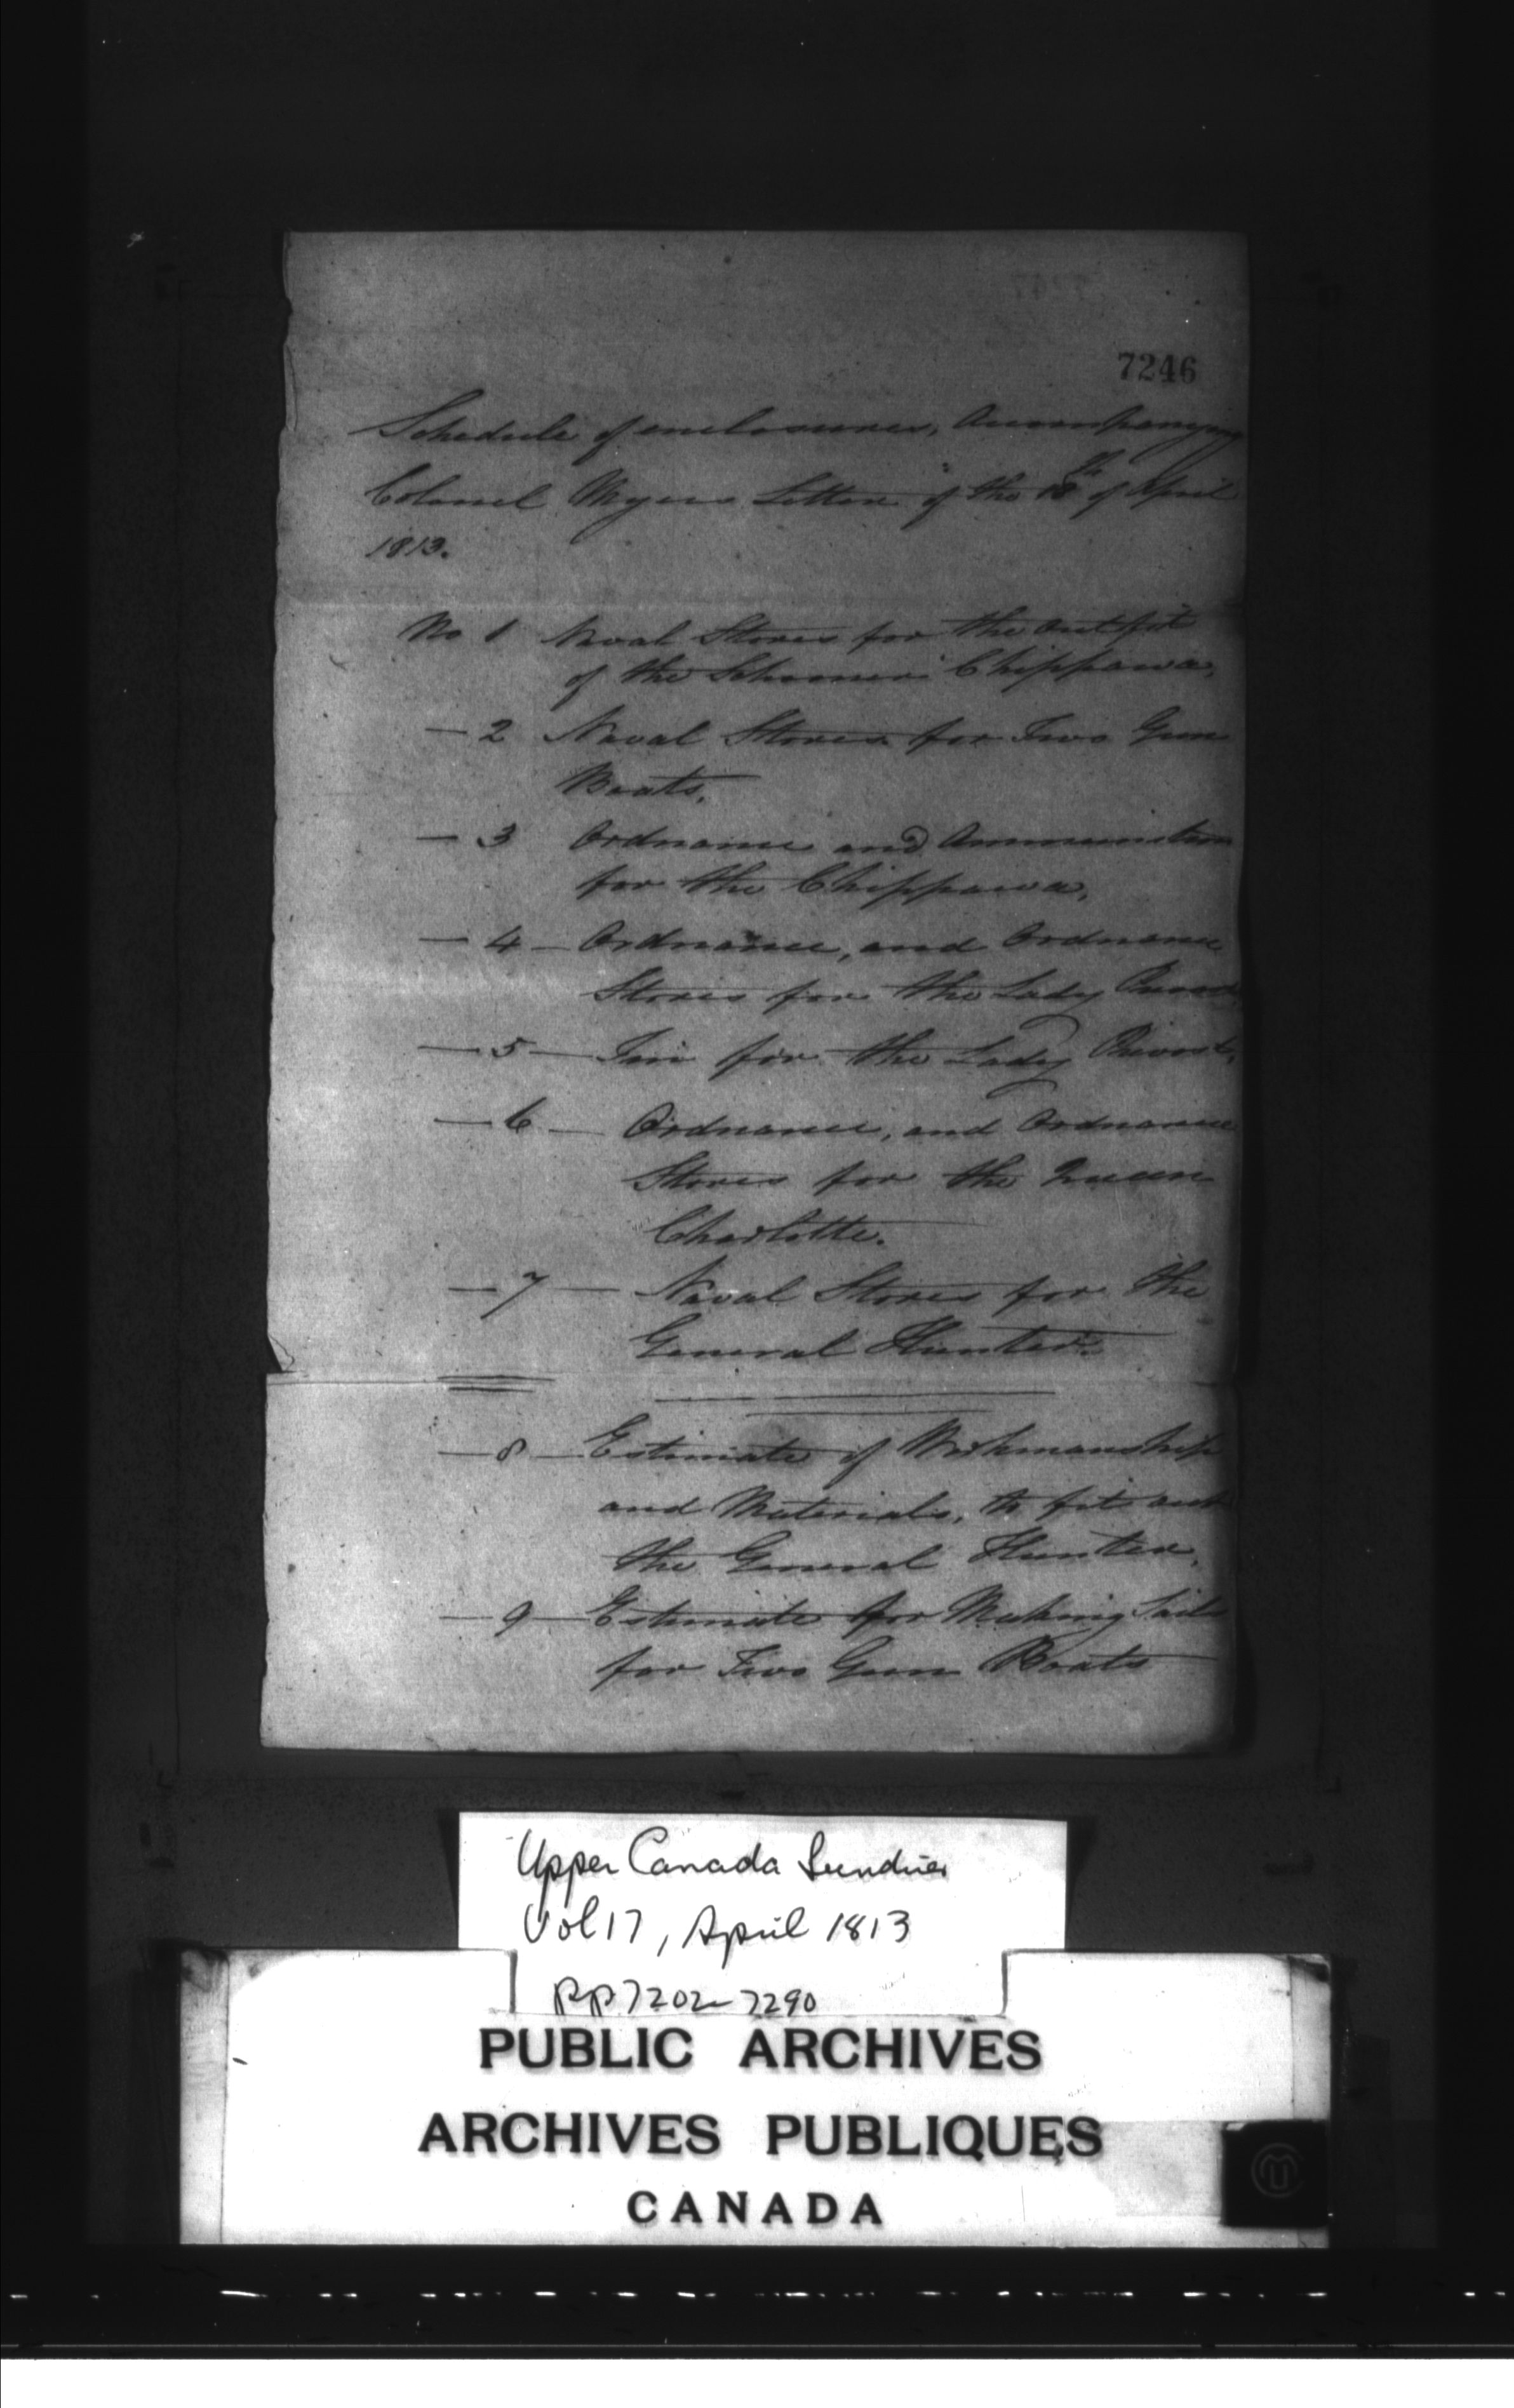 7246
Schedule of enclosures, Accompanying
Colonel Myers Letter of the 18th of April
1813.
No 1 Naval Stores for the outfit
of the Schooner Chippawa,
— 2 Naval Stores for Two Gun
Boats,
— 3 Ordnance and Ammunition
for the Chippawa,
— 4 — Ordnance, and Ordnance
Stores for the Lady Prevost
— 5 — for the Lady Prevost,
— 6 — Ordnance, and Ordnance
Stores for the Queen
Charlotte.
— 7 — Naval Stores for the
General Hunter.
— 8 — Estimate of Workmanship
and Materials, to fit out
the General Hunter,
— 9 — Estimate for Making Sails
for Two Gun Boats
Upper Canada Sundries
Vol 17, April 1813
pp 7202-7290
PUBLIC ARCHIVES
ARCHIVES PUBLIQUES
CANADA